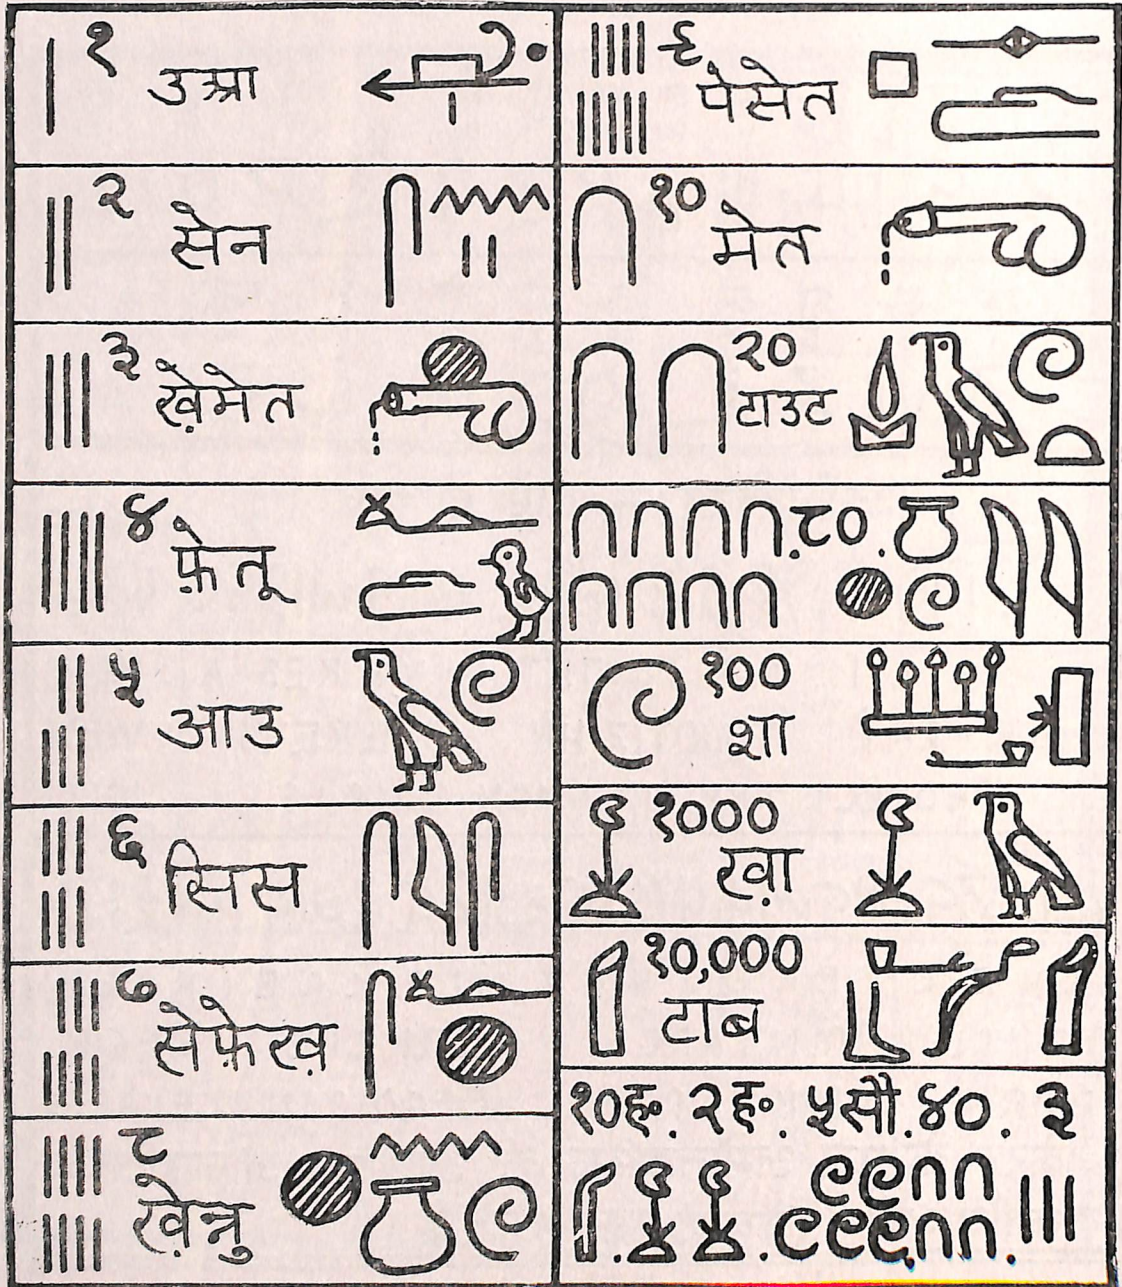 १
उआ
२
सेन
३
ख़ेमेत
४
फ़ेतू
५
आउ
६
सिस
७
सेफ़ेख़
८
ख़ेन्नु
९
पेसेत
१०
मेत
२०
टाउट
८०
१००
शा
१०००
ख़ा
१०,०००
टाब
१०ह॰ २ह॰ ५सौ ४० ३